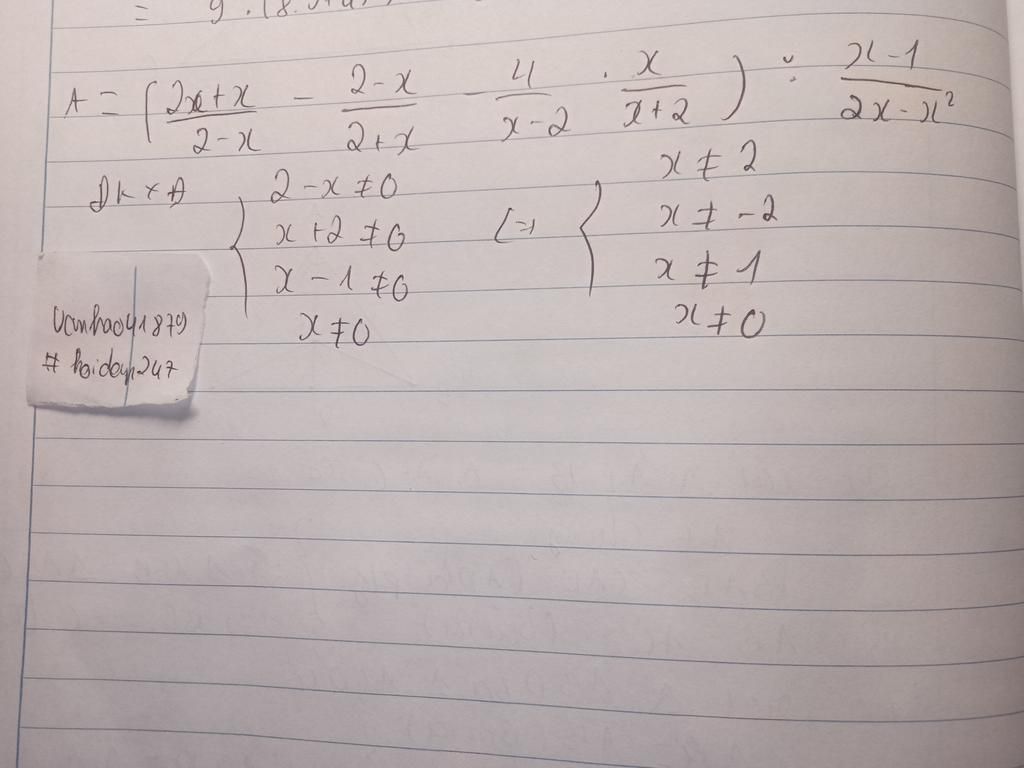 = 9 . (8
A = ( \frac{2x+x}{2-x} - \frac{2-x}{2+x} - \frac{4}{x-2} . \frac{x}{x+2} ) : \frac{x-1}{2x-x^2}
ĐKXĐ { 2-x ≠ 0 x+2 ≠ 0 x-1 ≠ 0 x ≠ 0 (=) { x ≠ 2 x ≠ -2 x ≠ 1 x ≠ 0
Vanhao41879
# hoidap247